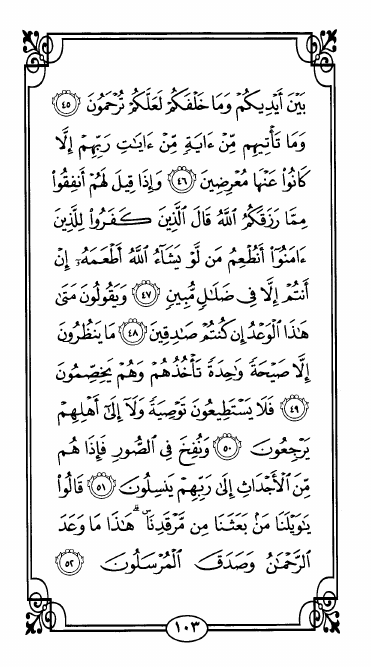 بَيْنَ أَيْدِيكُمْ وَمَا خَلْفَكُمْ لَعَلَّكُمْ تُرْحَمُونَ ٤٥
وَمَا تَأْتِيهِم مِّنْ ءَايَةٍ مِّنْ ءَايَٰتِ رَبِّهِمْ إِلَّا
كَانُوا۟ عَنْهَا مُعْرِضِينَ ٤٦ وَإِذَا قِيلَ لَهُمْ أَنفِقُوا۟
مِمَّا رَزَقَكُمُ ٱللَّهُ قَالَ ٱلَّذِينَ كَفَرُوا۟ لِلَّذِينَ
ءَامَنُوٓا۟ أَنُطْعِمُ مَن لَّوْ يَشَآءُ ٱللَّهُ أَطْعَمَهُۥٓ إِنْ
أَنتُمْ إِلَّا فِى ضَلَٰلٍ مُّبِينٍ ٤٧ وَيَقُولُونَ مَتَىٰ
هَٰذَا ٱلْوَعْدُ إِن كُنتُمْ صَٰدِقِينَ ٤٨ مَا يَنظُرُونَ
إِلَّا صَيْحَةً وَٰحِدَةً تَأْخُذُهُمْ وَهُمْ يَخِصِّمُونَ
٤٩ فَلَا يَسْتَطِيعُونَ تَوْصِيَةً وَلَآ إِلَىٰٓ أَهْلِهِمْ
يَرْجِعُونَ ٥٠ وَنُفِخَ فِى ٱلصُّورِ فَإِذَا هُم
مِّنَ ٱلْأَجْدَاثِ إِلَىٰ رَبِّهِمْ يَنسِلُونَ ٥١ قَالُوا۟
يَٰوَيْلَنَا مَنۢ بَعَثَنَا مِن مَّرْقَدِنَا ۜ ۗ هَٰذَا مَا وَعَدَ
ٱلرَّحْمَٰنُ وَصَدَقَ ٱلْمُرْسَلُونَ ٥٢
١٠٣